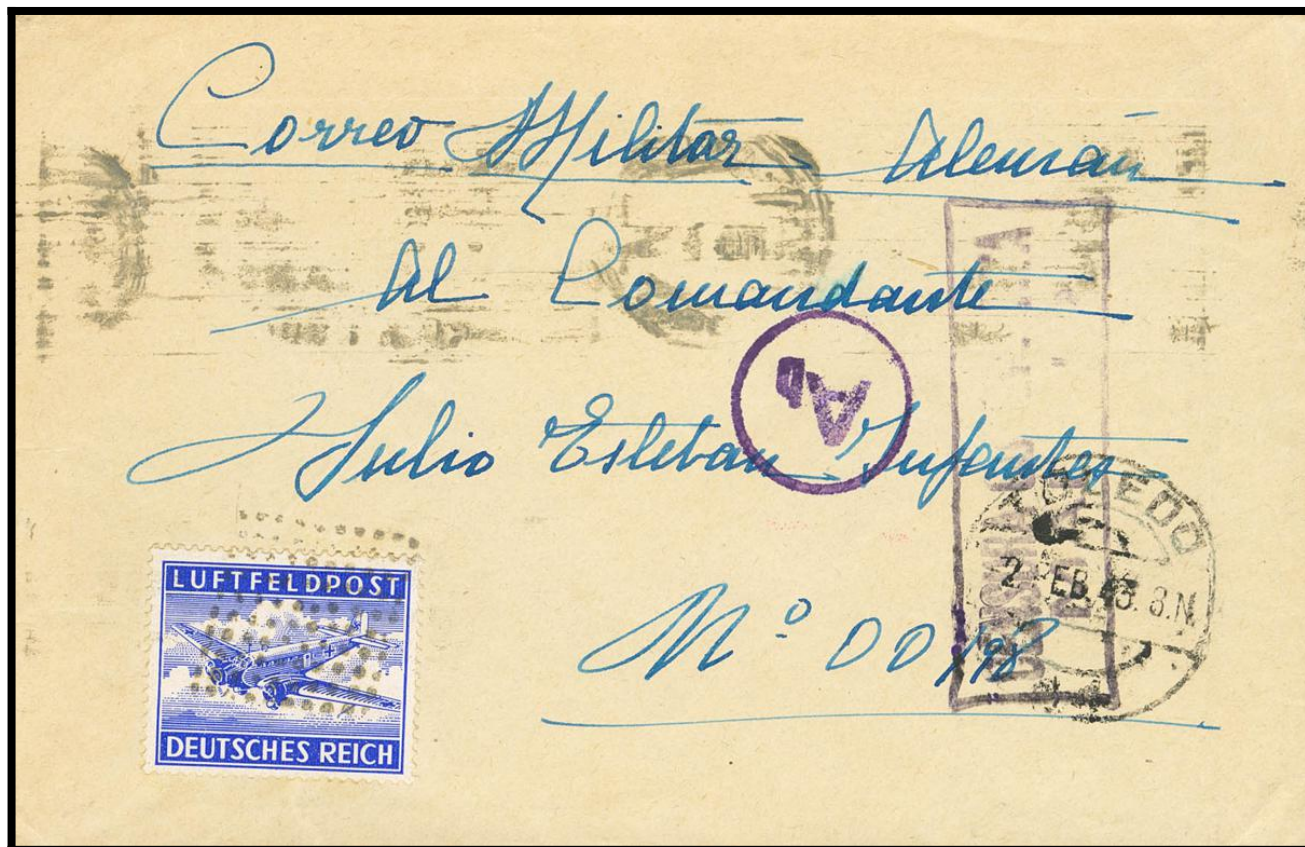 Correo Militar Alemán
Al Comandante
Julio Esteban Infantes
Aa
TOLEDO
2 FEB. 43. 8.N.
Nº 00198
LUFTFELDPOST
DEUTSCHES REICH